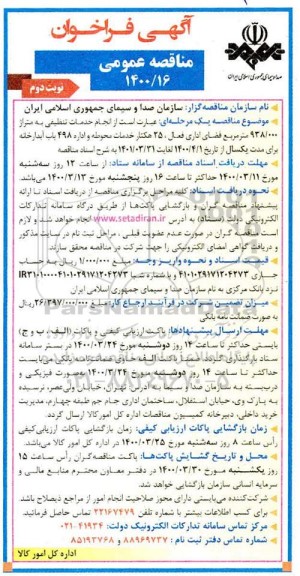 آگهی فراخوان
مناقصه عمومی
۱۴۰۰/۱۶
نوبت دوم
صدا و سیمای جمهوری اسلامی ایران
نام سازمان مناقصه‌گزار: سازمان صدا و سیمای جمهوری اسلامی ایران
موضوع مناقصه یک مرحله‌ای: عبارت است از انجام خدمات تنظیفی به متراژ
۹۳۸/۰۰۰ مترمربع فضای اداری فعال، ۲۵ هکتار خدمات محوطه و اداره ۴۹۸ باب آبدارخانه
برای مدت یکسال از تاریخ ۱۴۰۰/۴/۱ لغایت ۱۴۰۱/۰۳/۳۱ به شرح اسناد مناقصه
مهلت دریافت اسناد مناقصه از سامانه ستاد: از ساعت ۱۲ روز سه‌شنبه
مورخ ۱۴۰۰/۰۳/۱۱ حداکثر تا ساعت ۱۶ روز پنجشنبه مورخ ۱۴۰۰/۳/۱۳ می‌باشد.
نحوه دریافت اسناد: کلیه مراحل برگزاری مناقصه از دریافت اسناد تا ارائه
پیشنهاد مناقصه‌گران و بازگشایی پاکت‌ها از طریق درگاه سامانه تدارکات
الکترونیکی دولت (ستاد) به آدرس www.setadiran.ir انجام خواهد شد و لازم
است مناقصه گران در صورت عدم عضویت قبلی، مراحل ثبت نام در سایت مذکور
و دریافت گواهی امضای الکترونیکی را جهت شرکت در مناقصه محقق سازند.
قیمت اسناد و نحوه واریز وجه: مبلغ ۱/۰۰۰/۰۰۰ ریال به حساب
جاری ۴۱۰۱۰۲۹۱۷۱۲۰۴۲۷۳ و با شماره شبا
نزد بانک مرکزی به نام سازمان صدا و سیمای جمهوری اسلامی ایران
میزان تضمین شرکت در فرآیند ارجاع کار: مبلغ ۲۶/۳۹۷/۰۰۰/۰۰۰ ریال
به صورت ضمانت نامه بانکی
مهلت ارسال پیشنهادها: پاکت ارزیابی کیفی و پاکات (الف، ب و ج)
بایستی حداکثر تا ساعت ۱۴ روز دوشنبه مورخ ۱۴۰۰/۰۳/۲۴ در بستر سامانه
حداکثر تا ساعت ۱۴ روز دوشنبه مورخ ۱۴۰۰/۳/۲۴ به صورت فیزیکی و
دربسته به آدرس: تهران، خیابان ولیعصر، نرسیده
به پارک وی، خیابان استقلال، ساختمان اداری جام جم طبقه چهارم، مدیریت
خرید داخلی، دبیرخانه کمیسیون مناقصات اداره کل امورکالا ارسال گردد.
زمان بازگشایی پاکات ارزیابی کیفی: زمان بازگشایی پاکات ارزیابی‌کیفی
رأس ساعت ۸ روز سه‌شنبه مورخ ۱۴۰۰/۰۳/۲۵ در اداره کل امور کالا می‌باشد.
محل و تاریخ گشایش پاکت‌ها: پاکت مناقصه‌گران رأس ساعت ۱۵
روز یکشنبه مورخ ۱۴۰۰/۰۳/۳۰ در دفتر معاون محترم منابع مالی و
سرمایه انسانی سازمان بازگشایی خواهد شد.
شرکت‌کننده می‌بایستی دارای مجوز صلاحیت انجام امور از مراجع ذیصلاح باشد
برای کسب اطلاعات بیشتر با شماره تلفن ۲۲۱۶۷۴۷۹ تماس حاصل فرمائید.
مرکز تماس سامانه تدارکات الکترونیک دولت: ۴۱۹۳۴-۰۲۱
شماره تماس دفتر ثبت نام: ۸۸۹۶۹۷۳۷ و ۸۵۱۹۳۷۶۸
اداره کل امور کالا